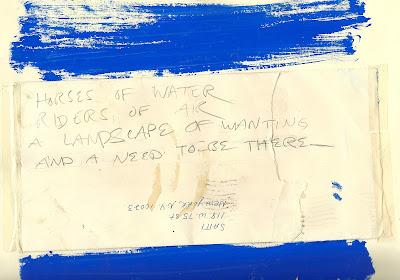 HORSES OF WATER
RIDERS OF AIR
A LANDSCAPE OF WANTING
AND A NEED TO BE THERE—
118 W. 75 St
New York, N.Y. 10023